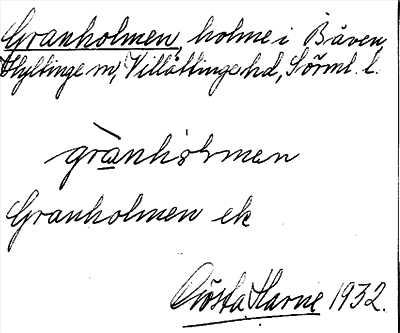 Granholmen, holme i Båven,
Hyltinge sn, Villåttinge hd, Sörml. l.
granhòlmen
Granholmen ek
Gösta Karne 1932.